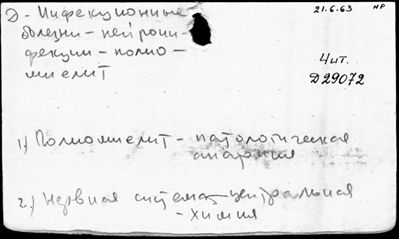 21.6.63 НР
Д - Инфекционные
болезни - нейроин-
фекции - полио-
миелит
Чит.
Д29072
1) Полиомиелит - патологическая
анатомия
2) Нервная система центральная
- химия